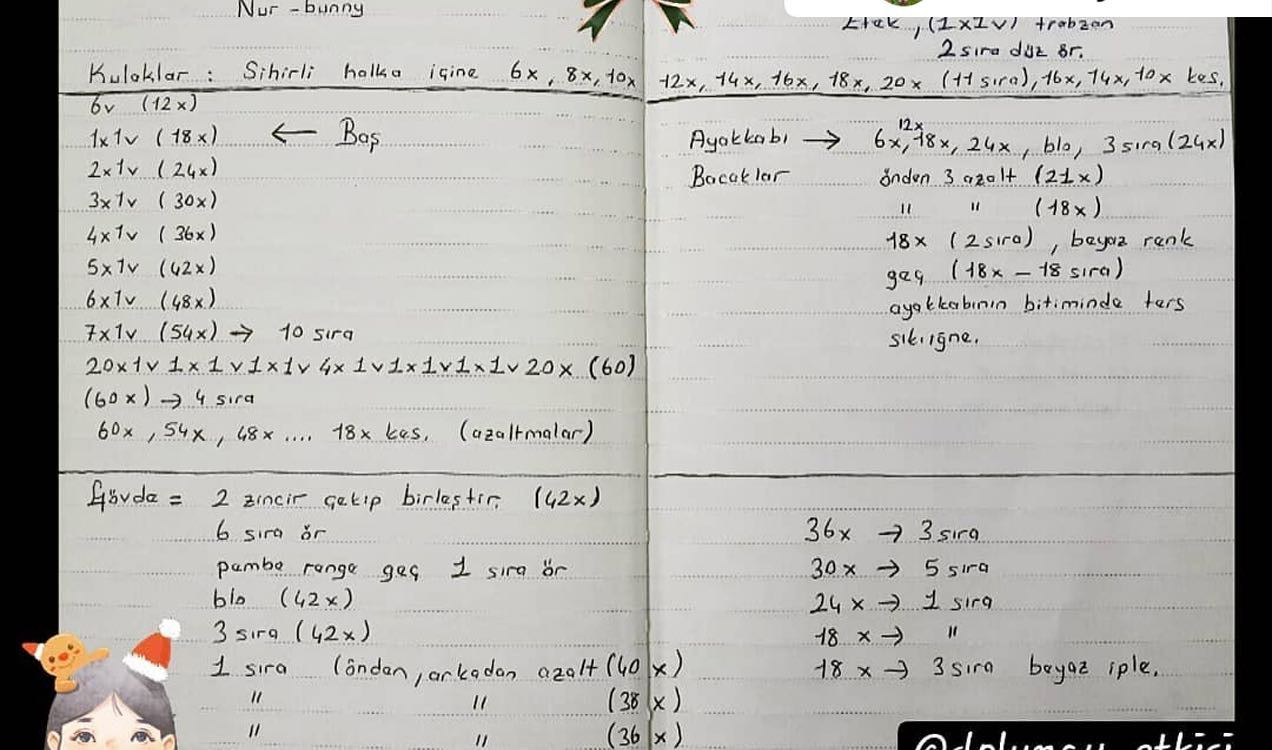 Nur-bunny
Etek, (1x1v) trabzan
2 sıra düz ör.
Kulaklar : Sihirli halka içine 6x, 8x, 10x, 12x, 14x, 16x, 18x, 20x (11 sıra), 16x, 14x, 10x kes.
6v (12x)
1x1v (18x) ← Baş
2x1v (24x)
3x1v (30x)
4x1v (36x)
5x1v (42x)
6x1v (48x)
7x1v (54x) → 10 sıra
20x1v 1x1v1x1v 4x 1v1x1v1x1v 20x (60)
(60x) → 4 sıra
60x, 54x, 48x .... 18x kes. (azaltmalar)
Ayakkabı → 6x, 12x, 18x, 24x, blo, 3 sıra (24x)
Bacaklar önden 3 azalt (21x)
" " (18x)
18x (2 sıra), beyaz renk
geç (18x – 18 sıra)
ayakkabının bitiminde ters
sık iğne.
Gövde = 2 zincir çekip birleştir. (42x)
6 sıra ör
pembe renge geç 1 sıra ör
blo (42x)
3 sıra (42x)
1 sıra (önden, arkadan azalt (40x)
" " (38x)
" " (36x)
36x → 3 sıra
30x → 5 sıra
24x → 1 sıra
18x → "
18x → 3 sıra beyaz iple.